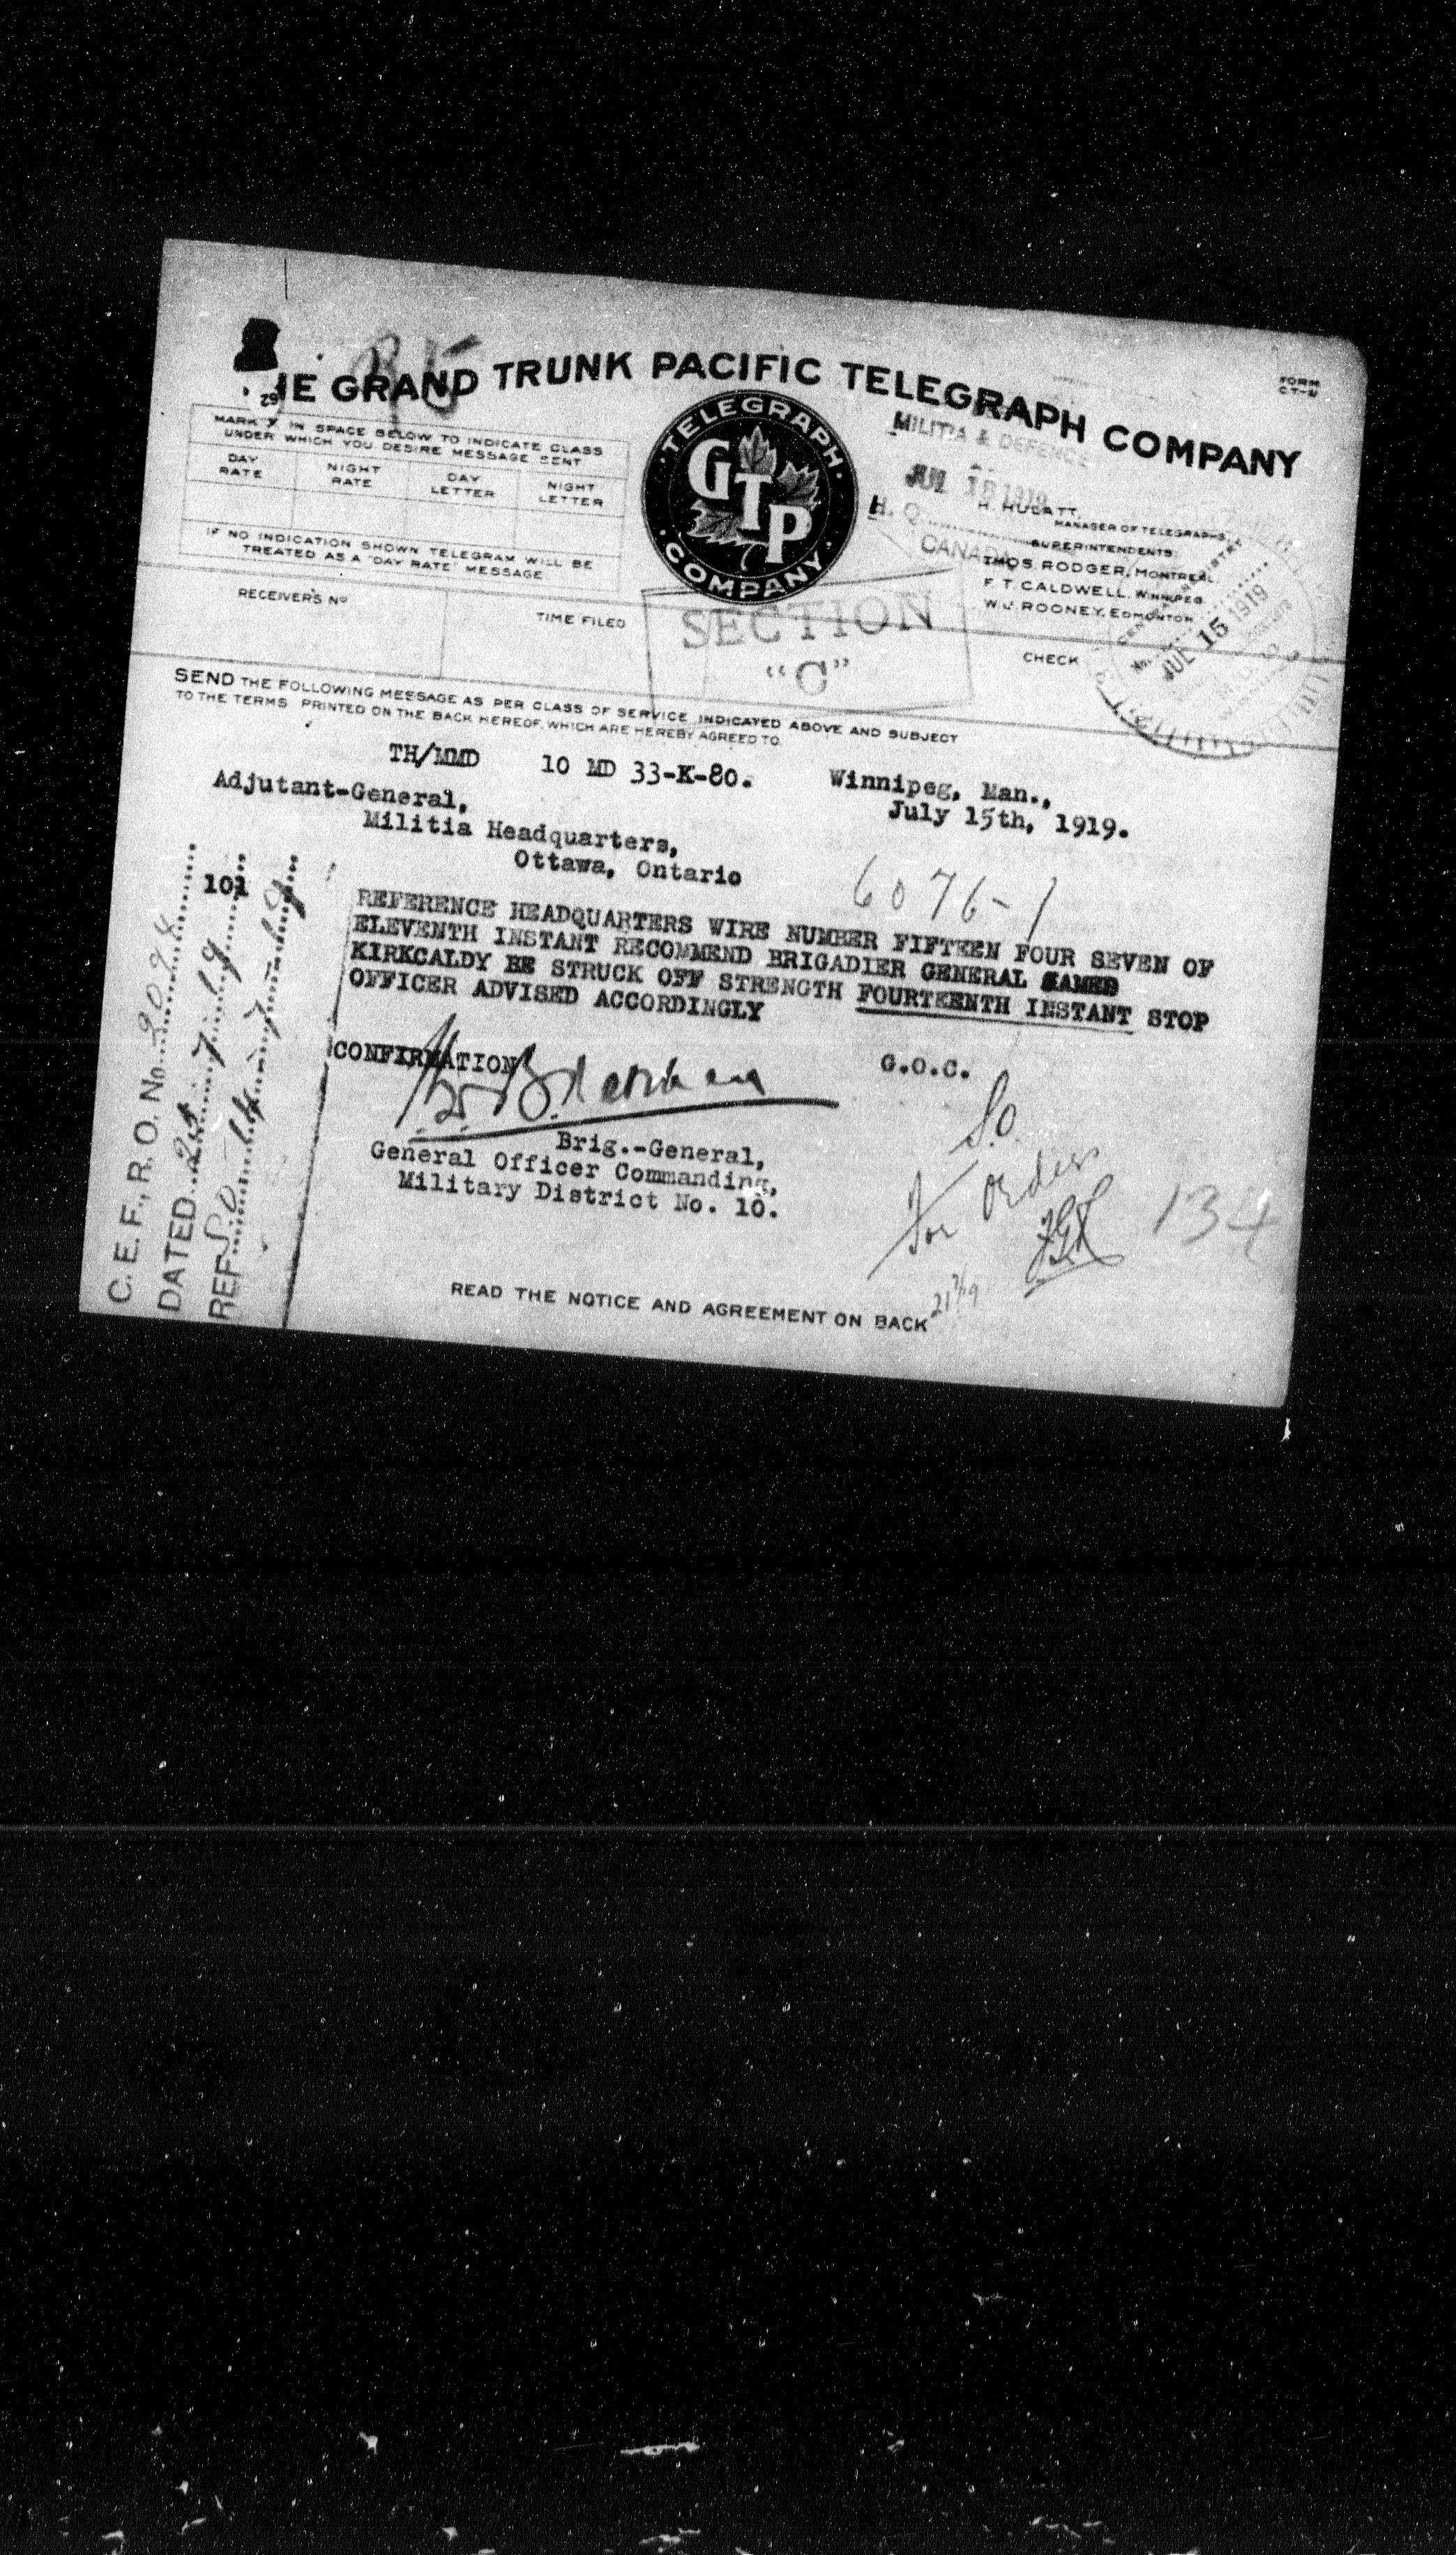 GRAND TRUNK PACIFIC TELEGRAPH COMPANY
FORM
MARK X IN SPACE BELOW TO INDICATE CLASS
UNDER WHICH YOU DESIRE MESSAGE SENT
DAY RATE NIGHT RATE DAY LETTER NIGHT LETTER
IF NO INDICATION SHOWN TELEGRAM WILL BE
TREATED AS A "DAY RATE" MESSAGE
TELEGRAPH
GTP
COMPANY
MILITIA & DEFENCE
JUL 1919
H. Q.
CANADA
MANAGER OF TELEGRAPHS
SUPERINTENDENTS:
THOS. RODGER, MONTREAL
F. T. CALDWELL, WINNIPEG
W. J. ROONEY, EDMONTON
JUL 15 1919
RECEIVER'S No
TIME FILED
CHECK
SECTION
"C"
SEND THE FOLLOWING MESSAGE AS PER CLASS OF SERVICE INDICATED ABOVE AND SUBJECT
TO THE TERMS PRINTED ON THE BACK HEREOF, WHICH ARE HEREBY AGREED TO.
TH/MMD 10 MD 33-K-80. Winnipeg, Man.,
July 15th, 1919.
Adjutant-General,
Militia Headquarters,
Ottawa, Ontario
6076-1
101
REFERENCE HEADQUARTERS WIRE NUMBER FIFTEEN FOUR SEVEN OF
ELEVENTH INSTANT RECOMMEND BRIGADIER GENERAL JAMES
KIRKCALDY BE STRUCK OFF STRENGTH FOURTEENTH INSTANT STOP
OFFICER ADVISED ACCORDINGLY
CONFIRMATION
G.O.C.
Brig.-General,
General Officer Commanding,
Military District No. 10.
S.O.
For Orders
134
READ THE NOTICE AND AGREEMENT ON BACK
C. E. F., R. O. No.
DATED 25 7 19
REF S.O. 14-7-19